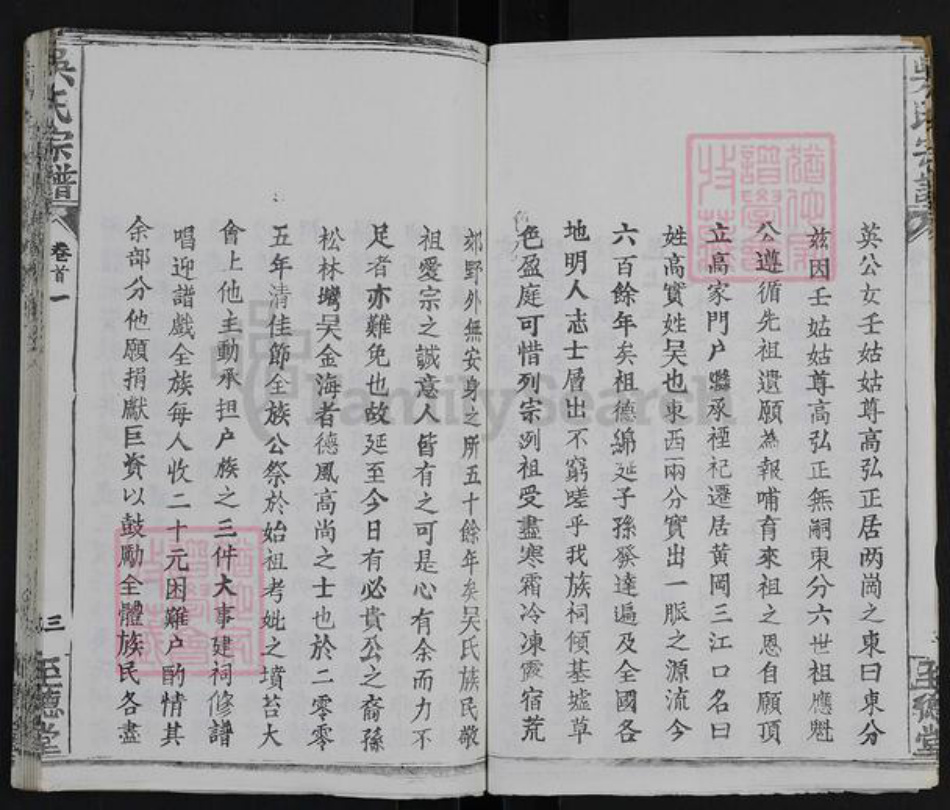 英公女壬姑姑尊高弘正居两崗之東曰東分
兹因壬姑姑尊高弘正無嗣東分六世祖應魁
公遵循先祖遺願為報哺育來祖之恩自願頂
立高家門户繼承禋祀遷居黄岡三江口名曰
姓高實姓吴也東西兩分實出一脈之源流今
六百餘年矣祖德綿延子孫發達遍及全國各
地明人志士層出不窮嗟乎我族祠傾基墟草
色盈庭可惜列宗洌祖受盡寒霜冷凍露宿荒
郊野外無安身之所五十餘年矣吴氏族民敬
祖愛宗之誠意人皆有之可是心有余而力不
足者亦難免也故延至今日有必貴公之裔孫
松林塆吴金海者德風高尚之士也於二零零
五年清佳節全族公祭於始祖考妣之墳苔大
會上他主動承担户族之三件大事建祠修譜
唱迎譜戲全族每人收二十元困難户酌情其
余部分他願捐獻巨資以鼓勵全體族民各盡
吳氏宗譜
卷首一
三
至德堂
FamilySearch